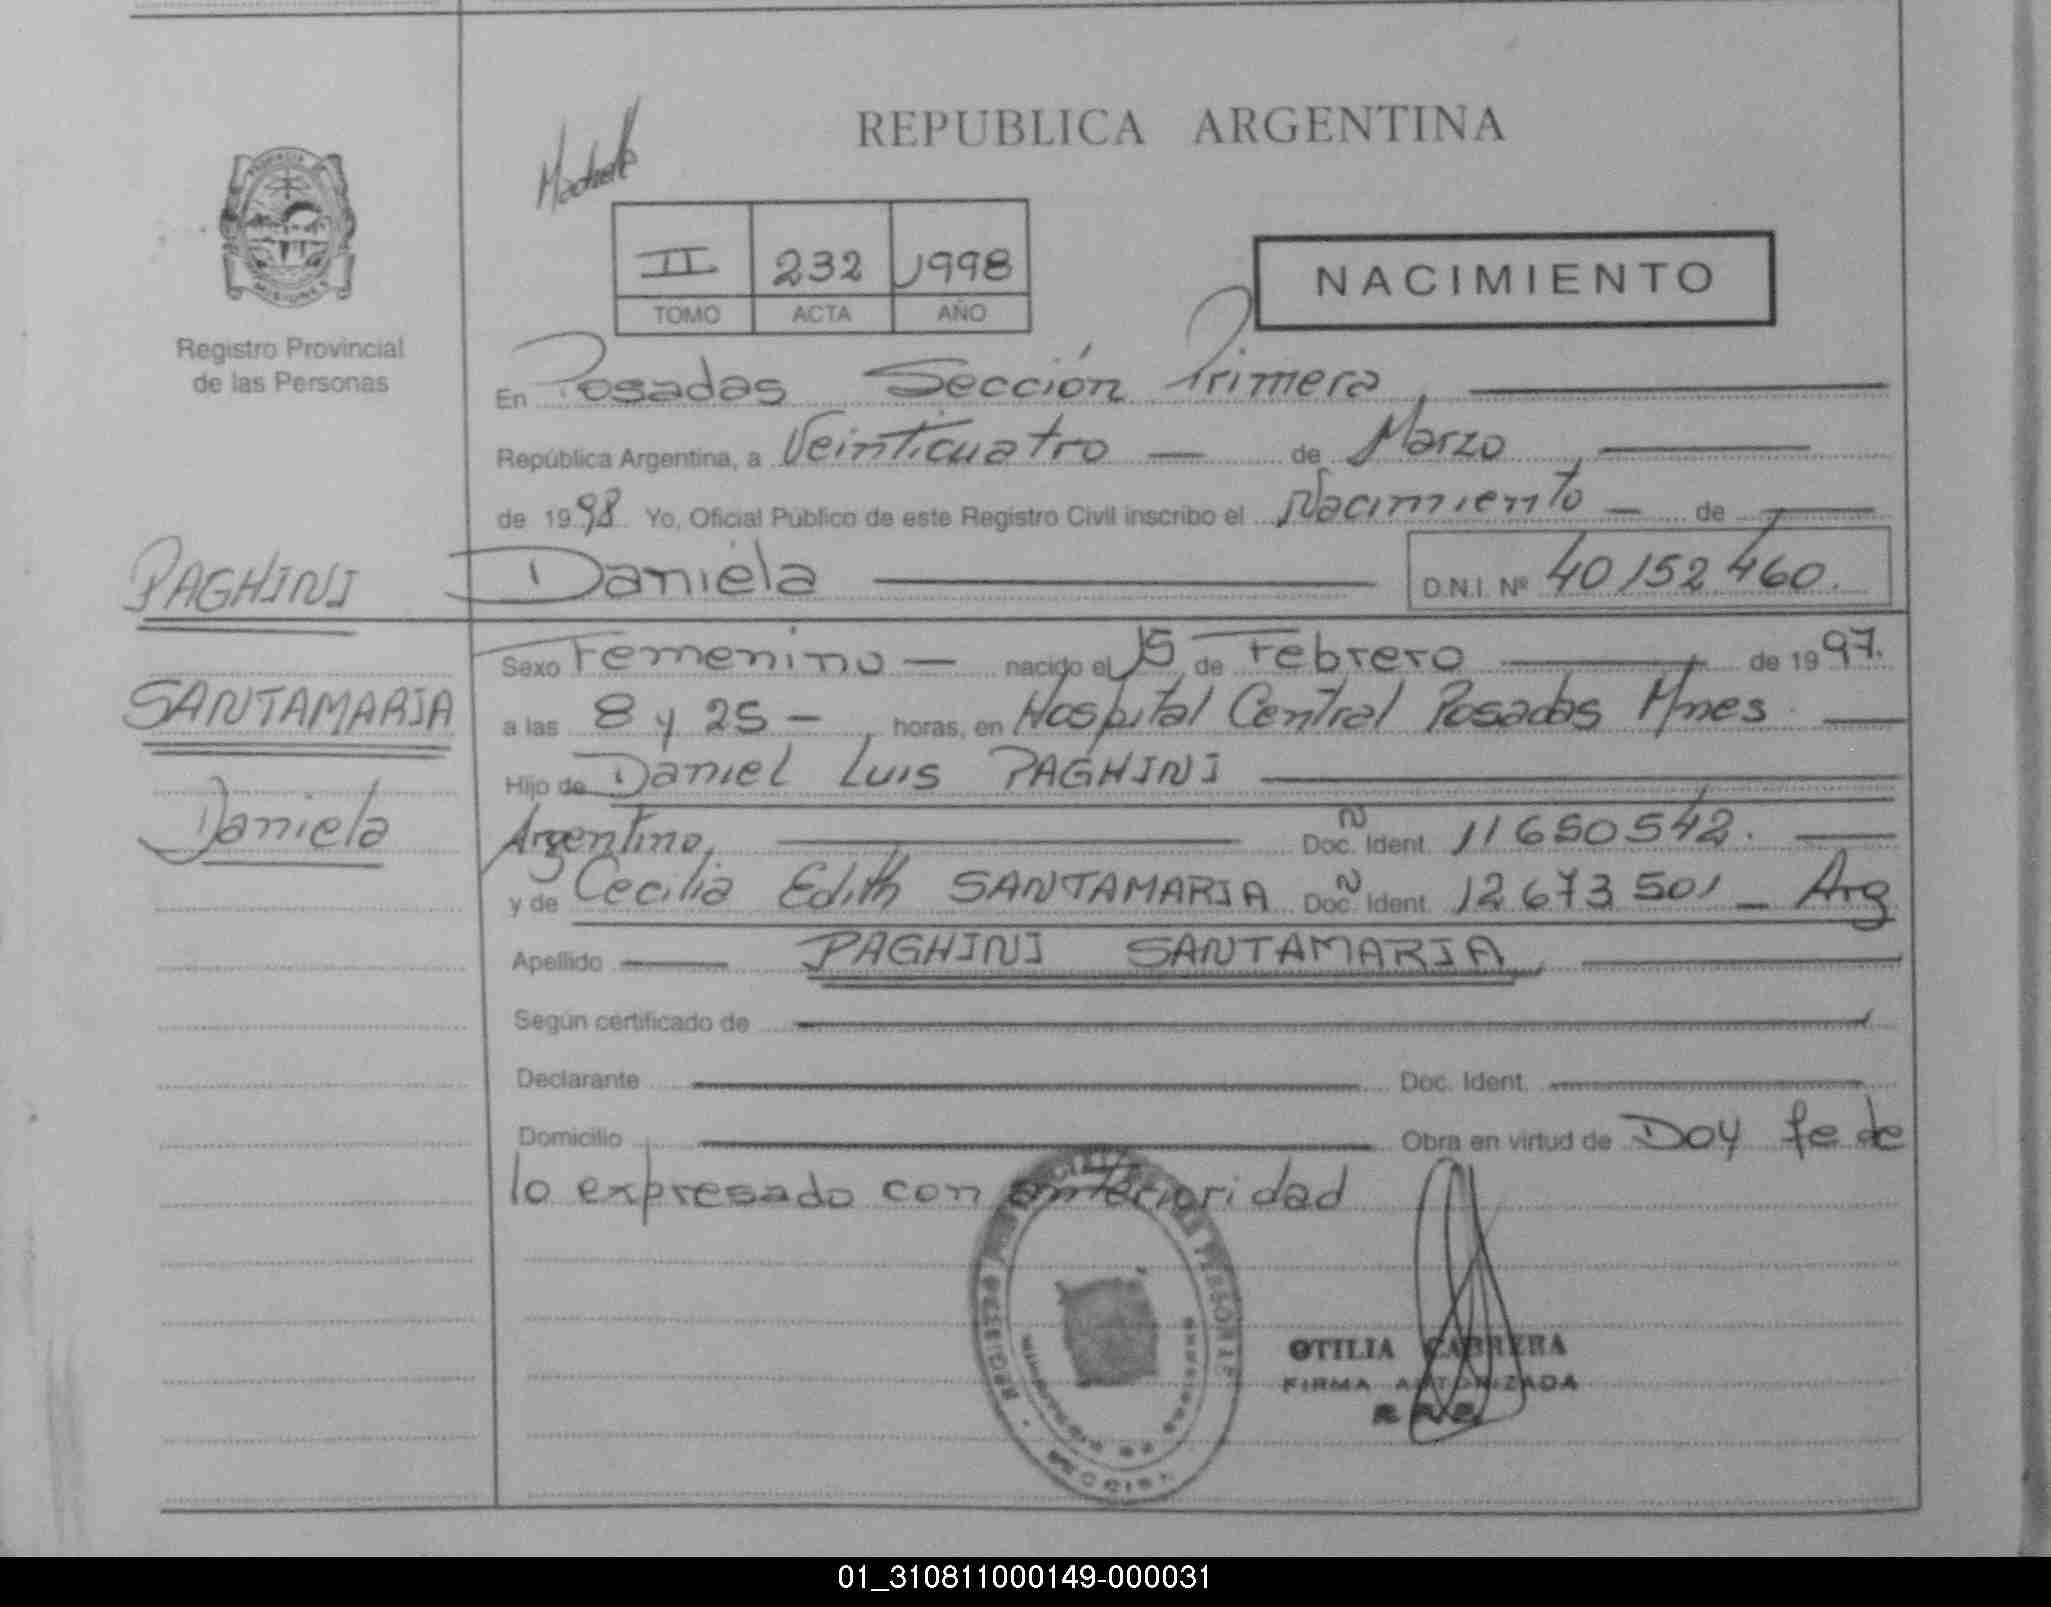 REPUBLICA ARGENTINA
II 232 1998
TOMO ACTA AÑO
NACIMIENTO
MISIONES
Registro Provincial
de las Personas
En Posadas Sección Primera
República Argentina, a Veinticuatro — de Marzo
de 1998 Yo, Oficial Público de este Registro Civil inscribo el Nacimiento — de
PAGHINI
Daniela D.N.I. Nº 40152460.
Sexo Femenino — nacido el 15 de Febrero de 1997.
SANTAMARIA
a las 8 y 25 — horas, en Hospital Central Posadas Mnes.
Hijo de Daniel Luis PAGHINI
Daniela
Argentino, Doc. Ident. 11650542.
y de Cecilia Edith SANTAMARIA Doc. Ident. 12673501 — Arg
Apellido — PAGHINI SANTAMARIA
Según certificado de
Declarante Doc. Ident.
Domicilio Obra en virtud de Doy fe de
lo expresado con anterioridad
OTILIA CABRERA
FIRMA AUTORIZADA
01_310811000149-000031